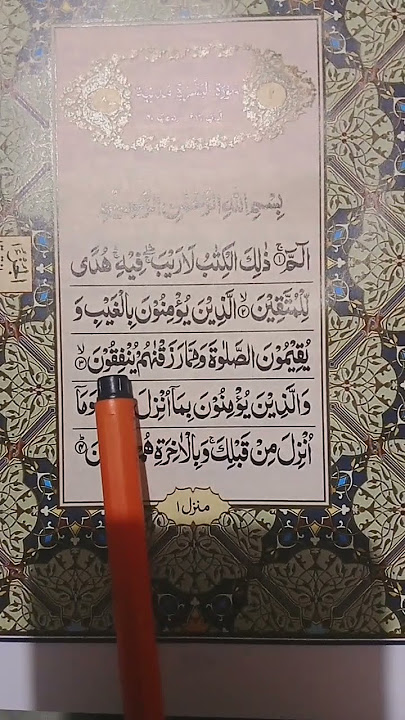 سورة البقرة مدنية
بسم الله الرحمن الرحيم
الٓمّٓ ۚ﴿۱﴾ ذٰلِكَ الْكِتٰبُ لَا رَيْبَ ۛۖ فِيْهِ ۛۚ هُدًى
لِّلْمُتَّقِيْنَ ۙ﴿۲﴾ الَّذِيْنَ يُؤْمِنُوْنَ بِالْغَيْبِ وَ
يُقِيْمُوْنَ الصَّلٰوةَ وَمِمَّا رَزَقْنٰهُمْ يُنْفِقُوْنَ ۙ﴿۳﴾
وَالَّذِيْنَ يُؤْمِنُوْنَ بِمَاۤ اُنْزِلَ وَمَاۤ
اُنْزِلَ مِنْ قَبْلِكَ ۚ وَبِالْاٰخِرَةِ ؕ﴿۴﴾
منزل ۱